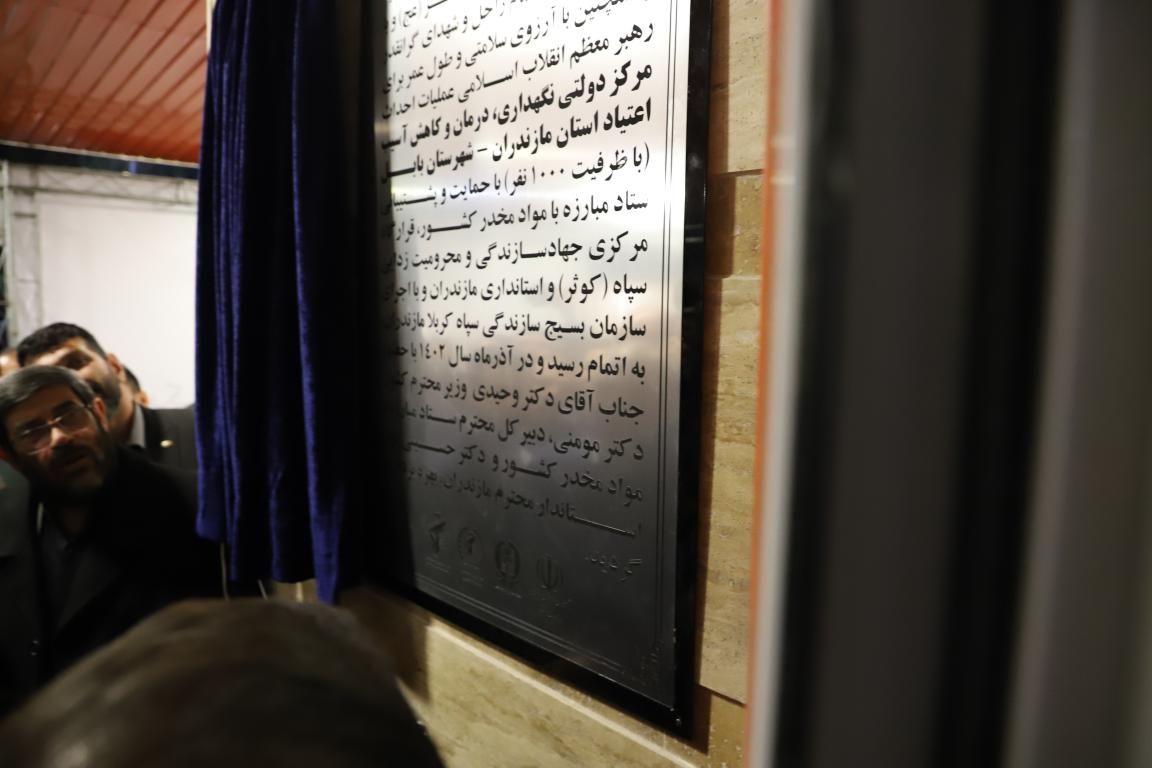 راحل و شهدای گرانقدر
همچنین با آرزوی سلامتی و طول عمر برای
رهبر معظم انقلاب اسلامی عملیات احداث
مرکز دولتی نگهداری، درمان و کاهش آسیب
اعتیاد استان مازندران - شهرستان بابل
(با ظرفیت ۱۰۰۰ نفر) با حمایت و پشتیبانی
ستاد مبارزه با مواد مخدر کشور، قرارگاه
مرکزی جهادسازندگی و محرومیت زدایی
سپاه (کوثر) و استانداری مازندران و با اجرای
سازمان بسیج سازندگی سپاه کربلا مازندران
به اتمام رسید و در آذرماه سال ۱٤۰۲ با
جناب آقای دکتر وحیدی وزیر محترم
دکتر مومنی، دبیر کل محترم ستاد
مواد مخدر کشور و دکتر
استاندار محترم مازندران، بهره
گردید.